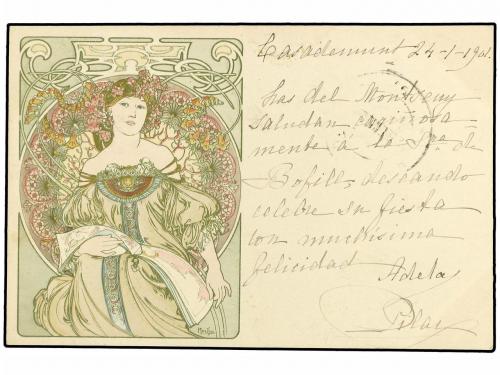 Casademunt 24-1-1901.
Las del Montseny
saludan cariñosa
mente á la Sra. de
Bofill, deseando
celebre su fiesta
con muchisima
felicidad Adela
Pilar
Mucha